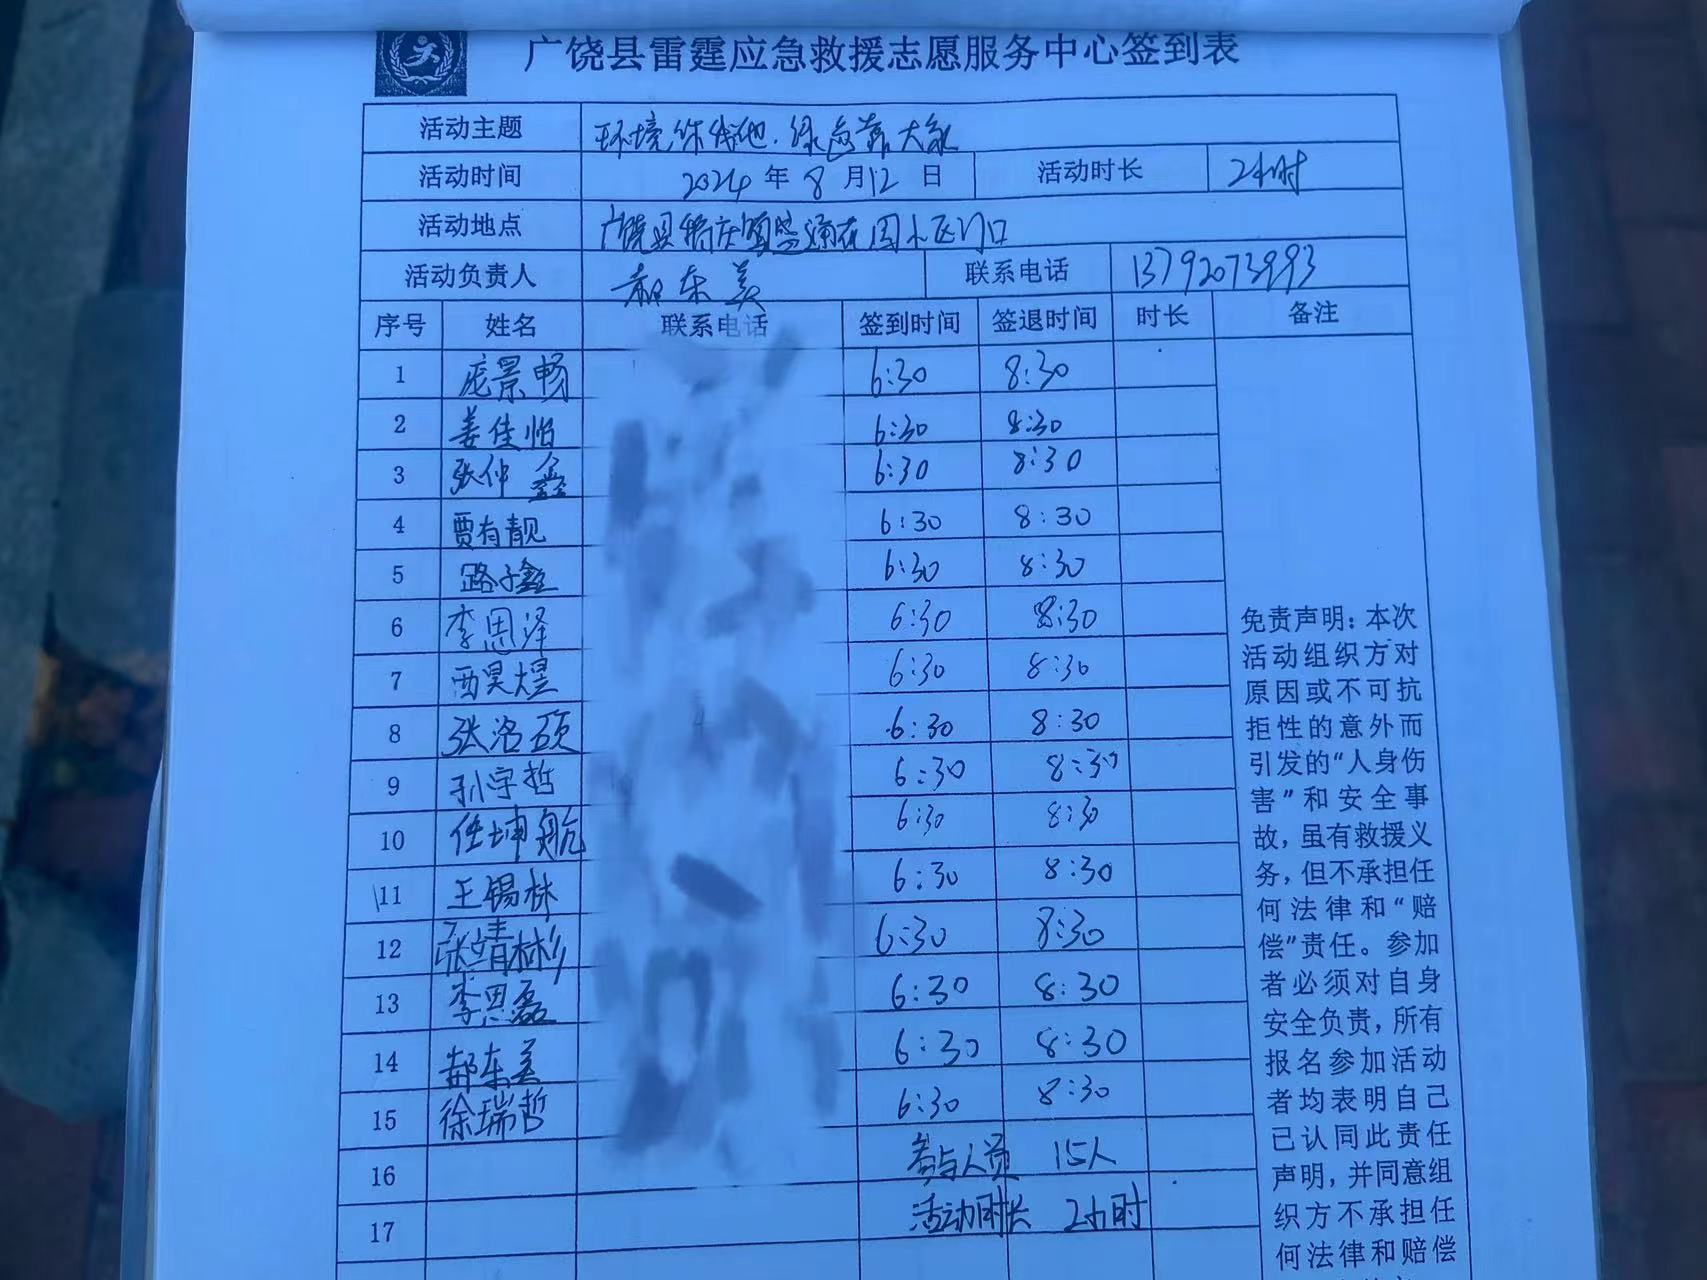 广饶县雷霆应急救援志愿服务中心签到表
活动主题 环境你我他.绿色靠大家
活动时间 2024年8月12日 活动时长 2小时
活动地点 广饶县 花园小区门口
活动负责人 郝东美 联系电话 13792073993
序号 姓名 联系电话 签到时间 签退时间 时长 备注
1 庞景畅 6:30 8:30
2 姜佳怡 6:30 8:30
3 张仲鑫 6:30 8:30
4 贾有靓 6:30 8:30
5 路子鑫 6:30 8:30
6 李恩泽 6:30 8:30
7 西昊煜 6:30 8:30
8 张洛硕 6:30 8:30
9 孙宇哲 6:30 8:30
10 任坤航 6:30 8:30
11 王锡林 6:30 8:30
12 张靖彬 6:30 8:30
13 李思磊 6:30 8:30
14 郝东美 6:30 8:30
15 徐瑞哲 6:30 8:30
16 参与人员 15人
17 活动时长 2小时
免责声明：本次
活动组织方对
原因或不可抗
拒性的意外而
引发的“人身伤
害”和安全事
故，虽有救援义
务，但不承担任
何法律和“赔
偿”责任。参加
者必须对自身
安全负责，所有
报名参加活动
者均表明自己
已认同此责任
声明，并同意组
织方不承担任
何法律和赔偿